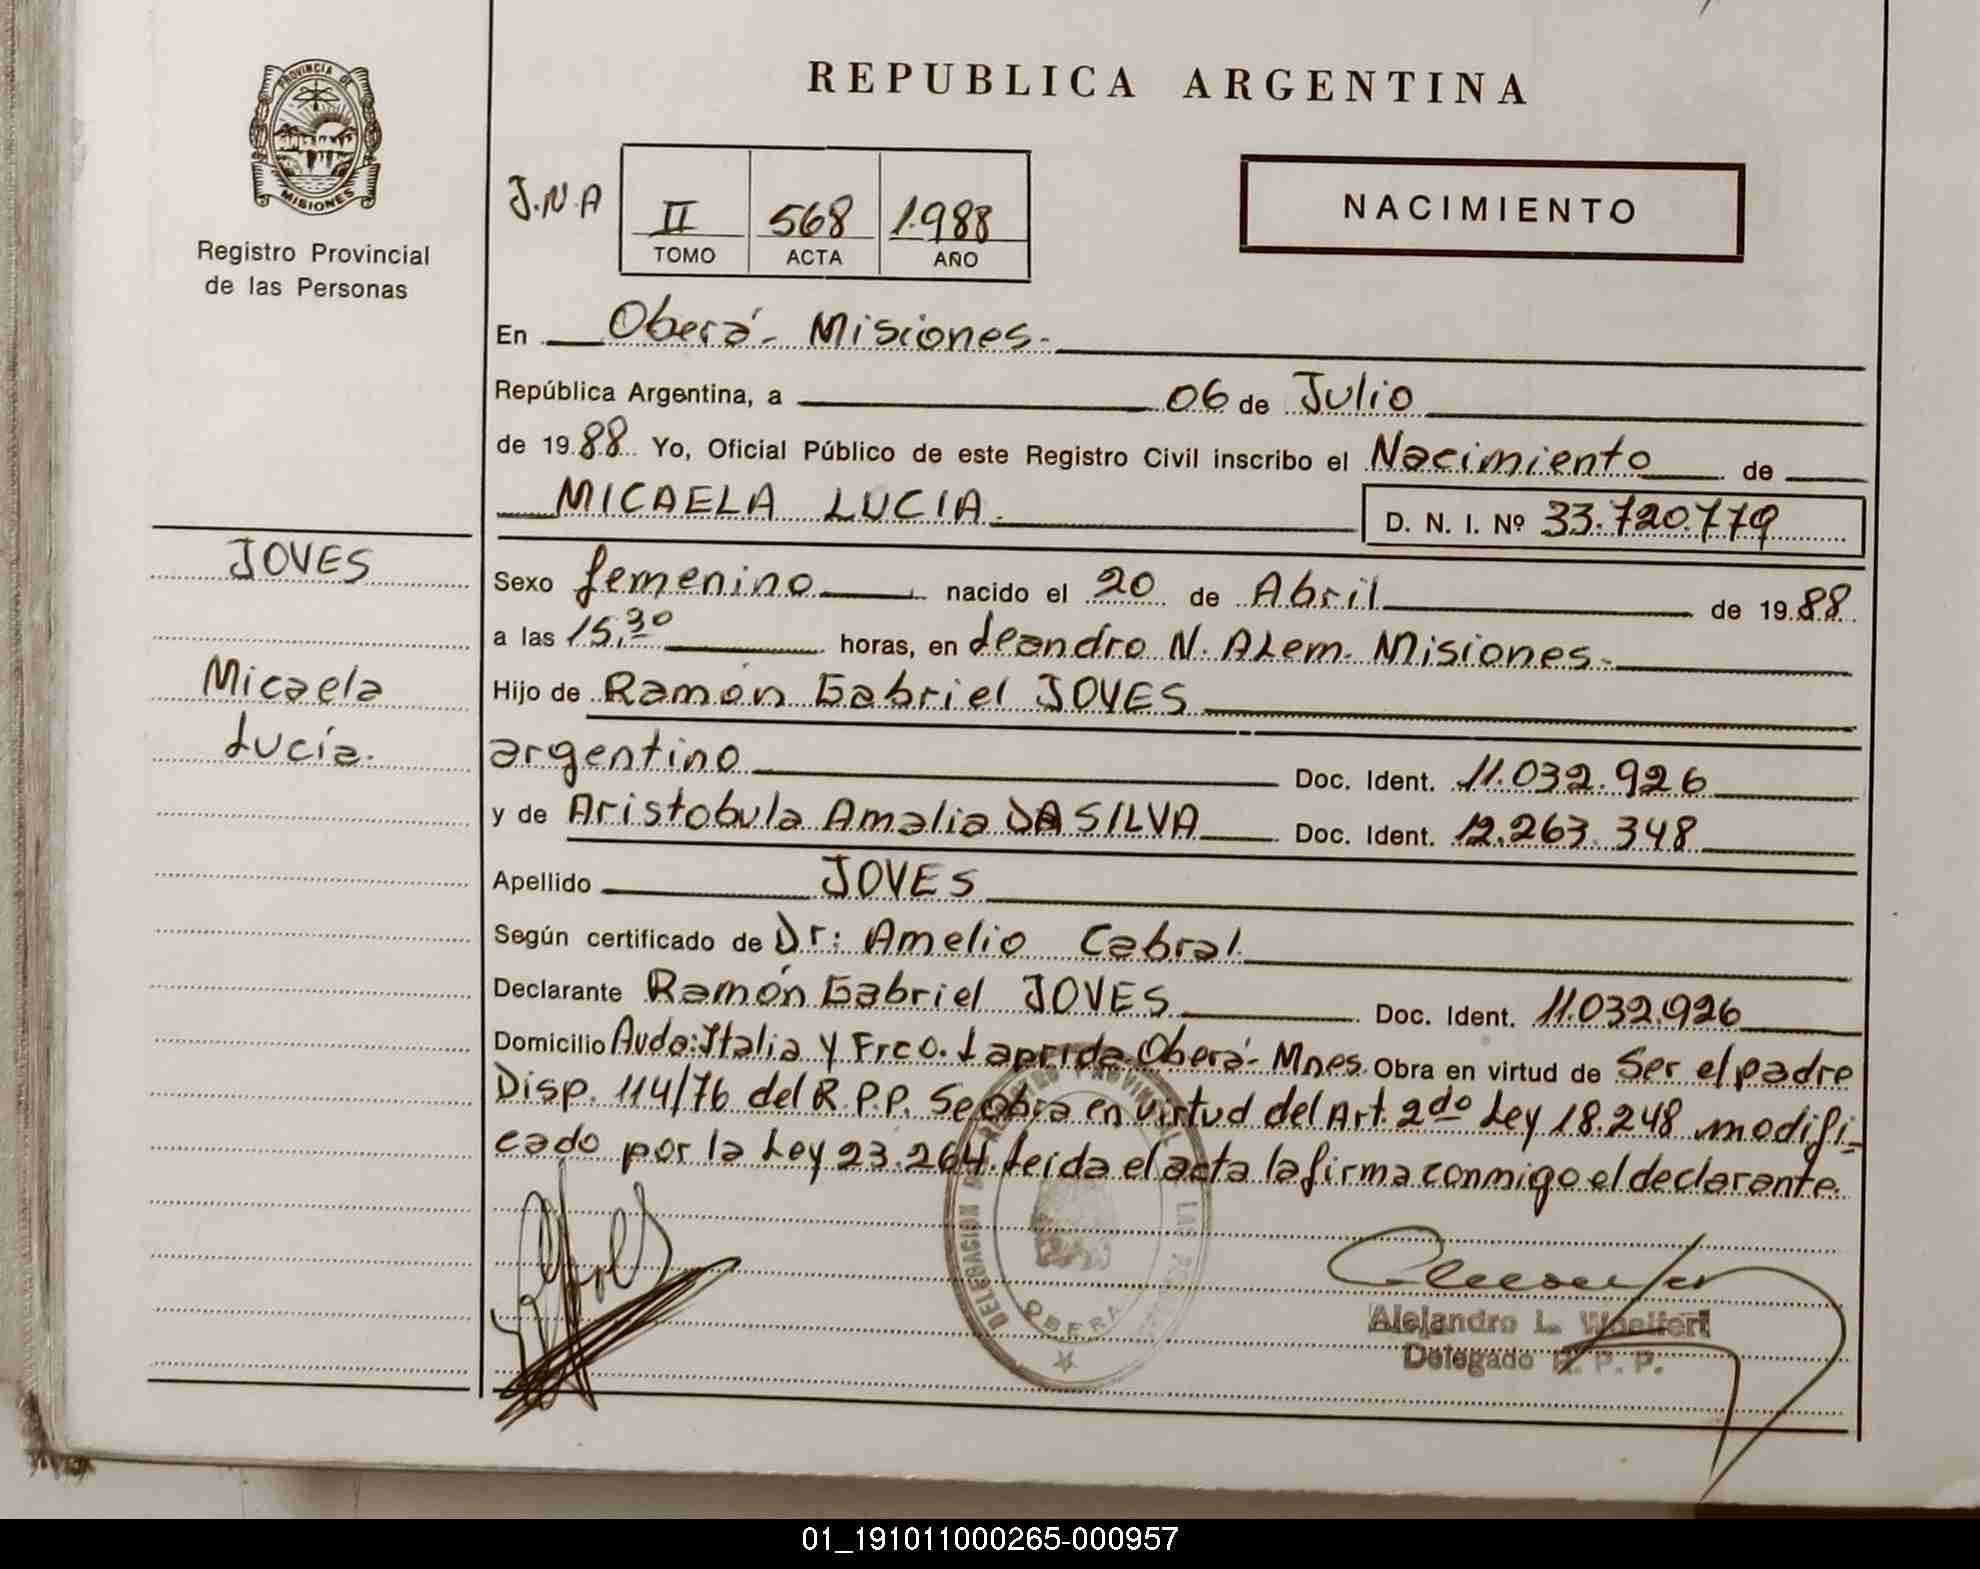 REPUBLICA ARGENTINA
PROVINCIA DE
MISIONES
Registro Provincial
de las Personas
J.N.A
II 568 1.988
TOMO ACTA AÑO
NACIMIENTO
En Oberá - Misiones -
República Argentina, a 06 de Julio
de 19 88 Yo, Oficial Público de este Registro Civil inscribo el Nacimiento de
MICAELA LUCIA. D. N. I. Nº 33.720.779
JOVES
Micaela
Lucía.
Sexo femenino nacido el 20 de Abril de 19 88
a las 15,30 horas, en Leandro N. ALem - Misiones -
Hijo de Ramón Gabriel JOVES
argentino Doc. Ident. 11.032.926
y de Aristobula Amalia DA SILVA Doc. Ident. 12.263.348
Apellido JOVES
Según certificado de Dr: Amelio Cabral.
Declarante Ramón Gabriel JOVES Doc. Ident. 11.032.926
Domicilio Avda: Italia y Frco. Laprida. Oberá - Mnes. Obra en virtud de Ser el padre
Disp. 114/76 del R.P.P. Se obra en virtud del Art. 2do Ley 18.248 modifi-
cado por la Ley 23.264. Leida el acta la firma conmigo el declarante.
DELEGACION REGISTRO PROVINCIAL DE LAS
OBERA
Alejandro L.
Delegado R. P. P.
01_191011000265-000957